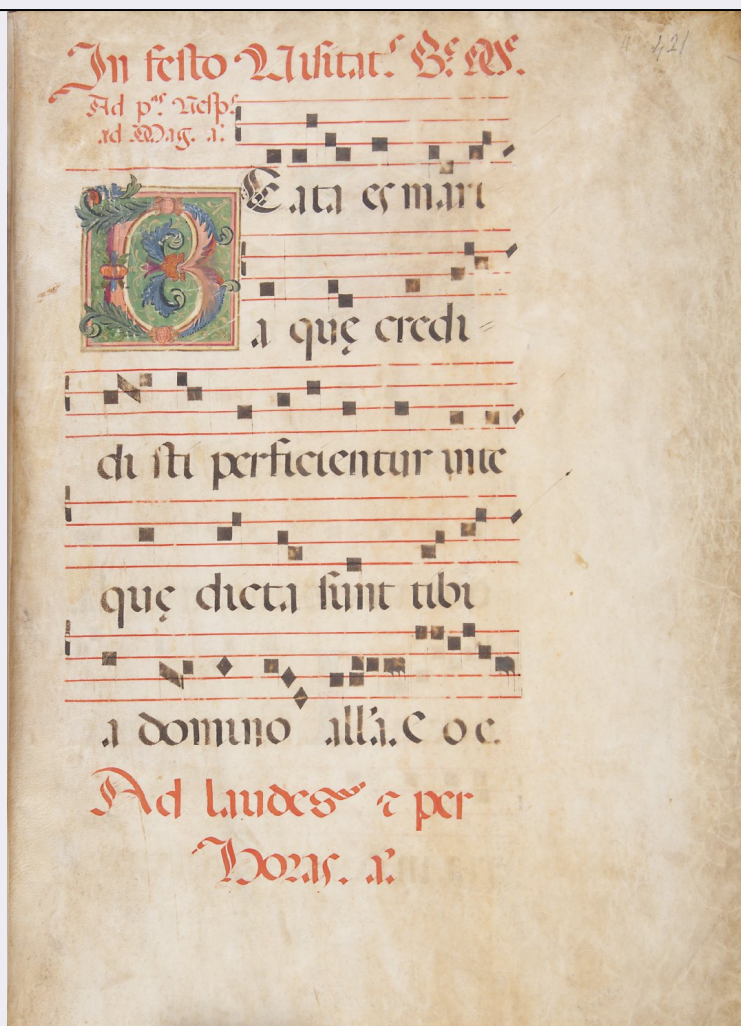 In festo Visitat. B.e M.e.
Ad p.as Vesp.s
ad Mag. a.
BEata es mari
a quę credi=
di sti perficientur in te
quę dicta sunt tibi
a domino all'a. E o e.
Ad laudes z per
Horas. a.
421